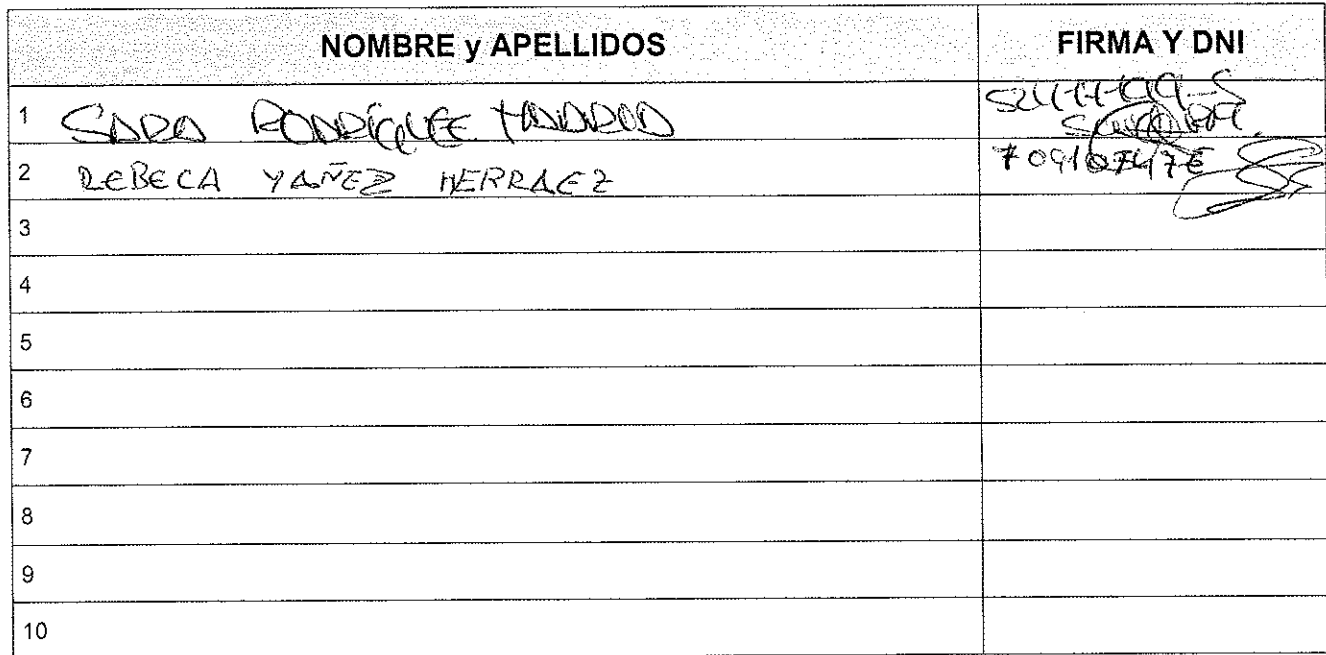 NOMBRE y APELLIDOS FIRMA Y DNI
1 SARA RODRÍGUEZ MADRID
2 REBECA YAÑEZ HERRAEZ 70910747E
3
4
5
6
7
8
9
10